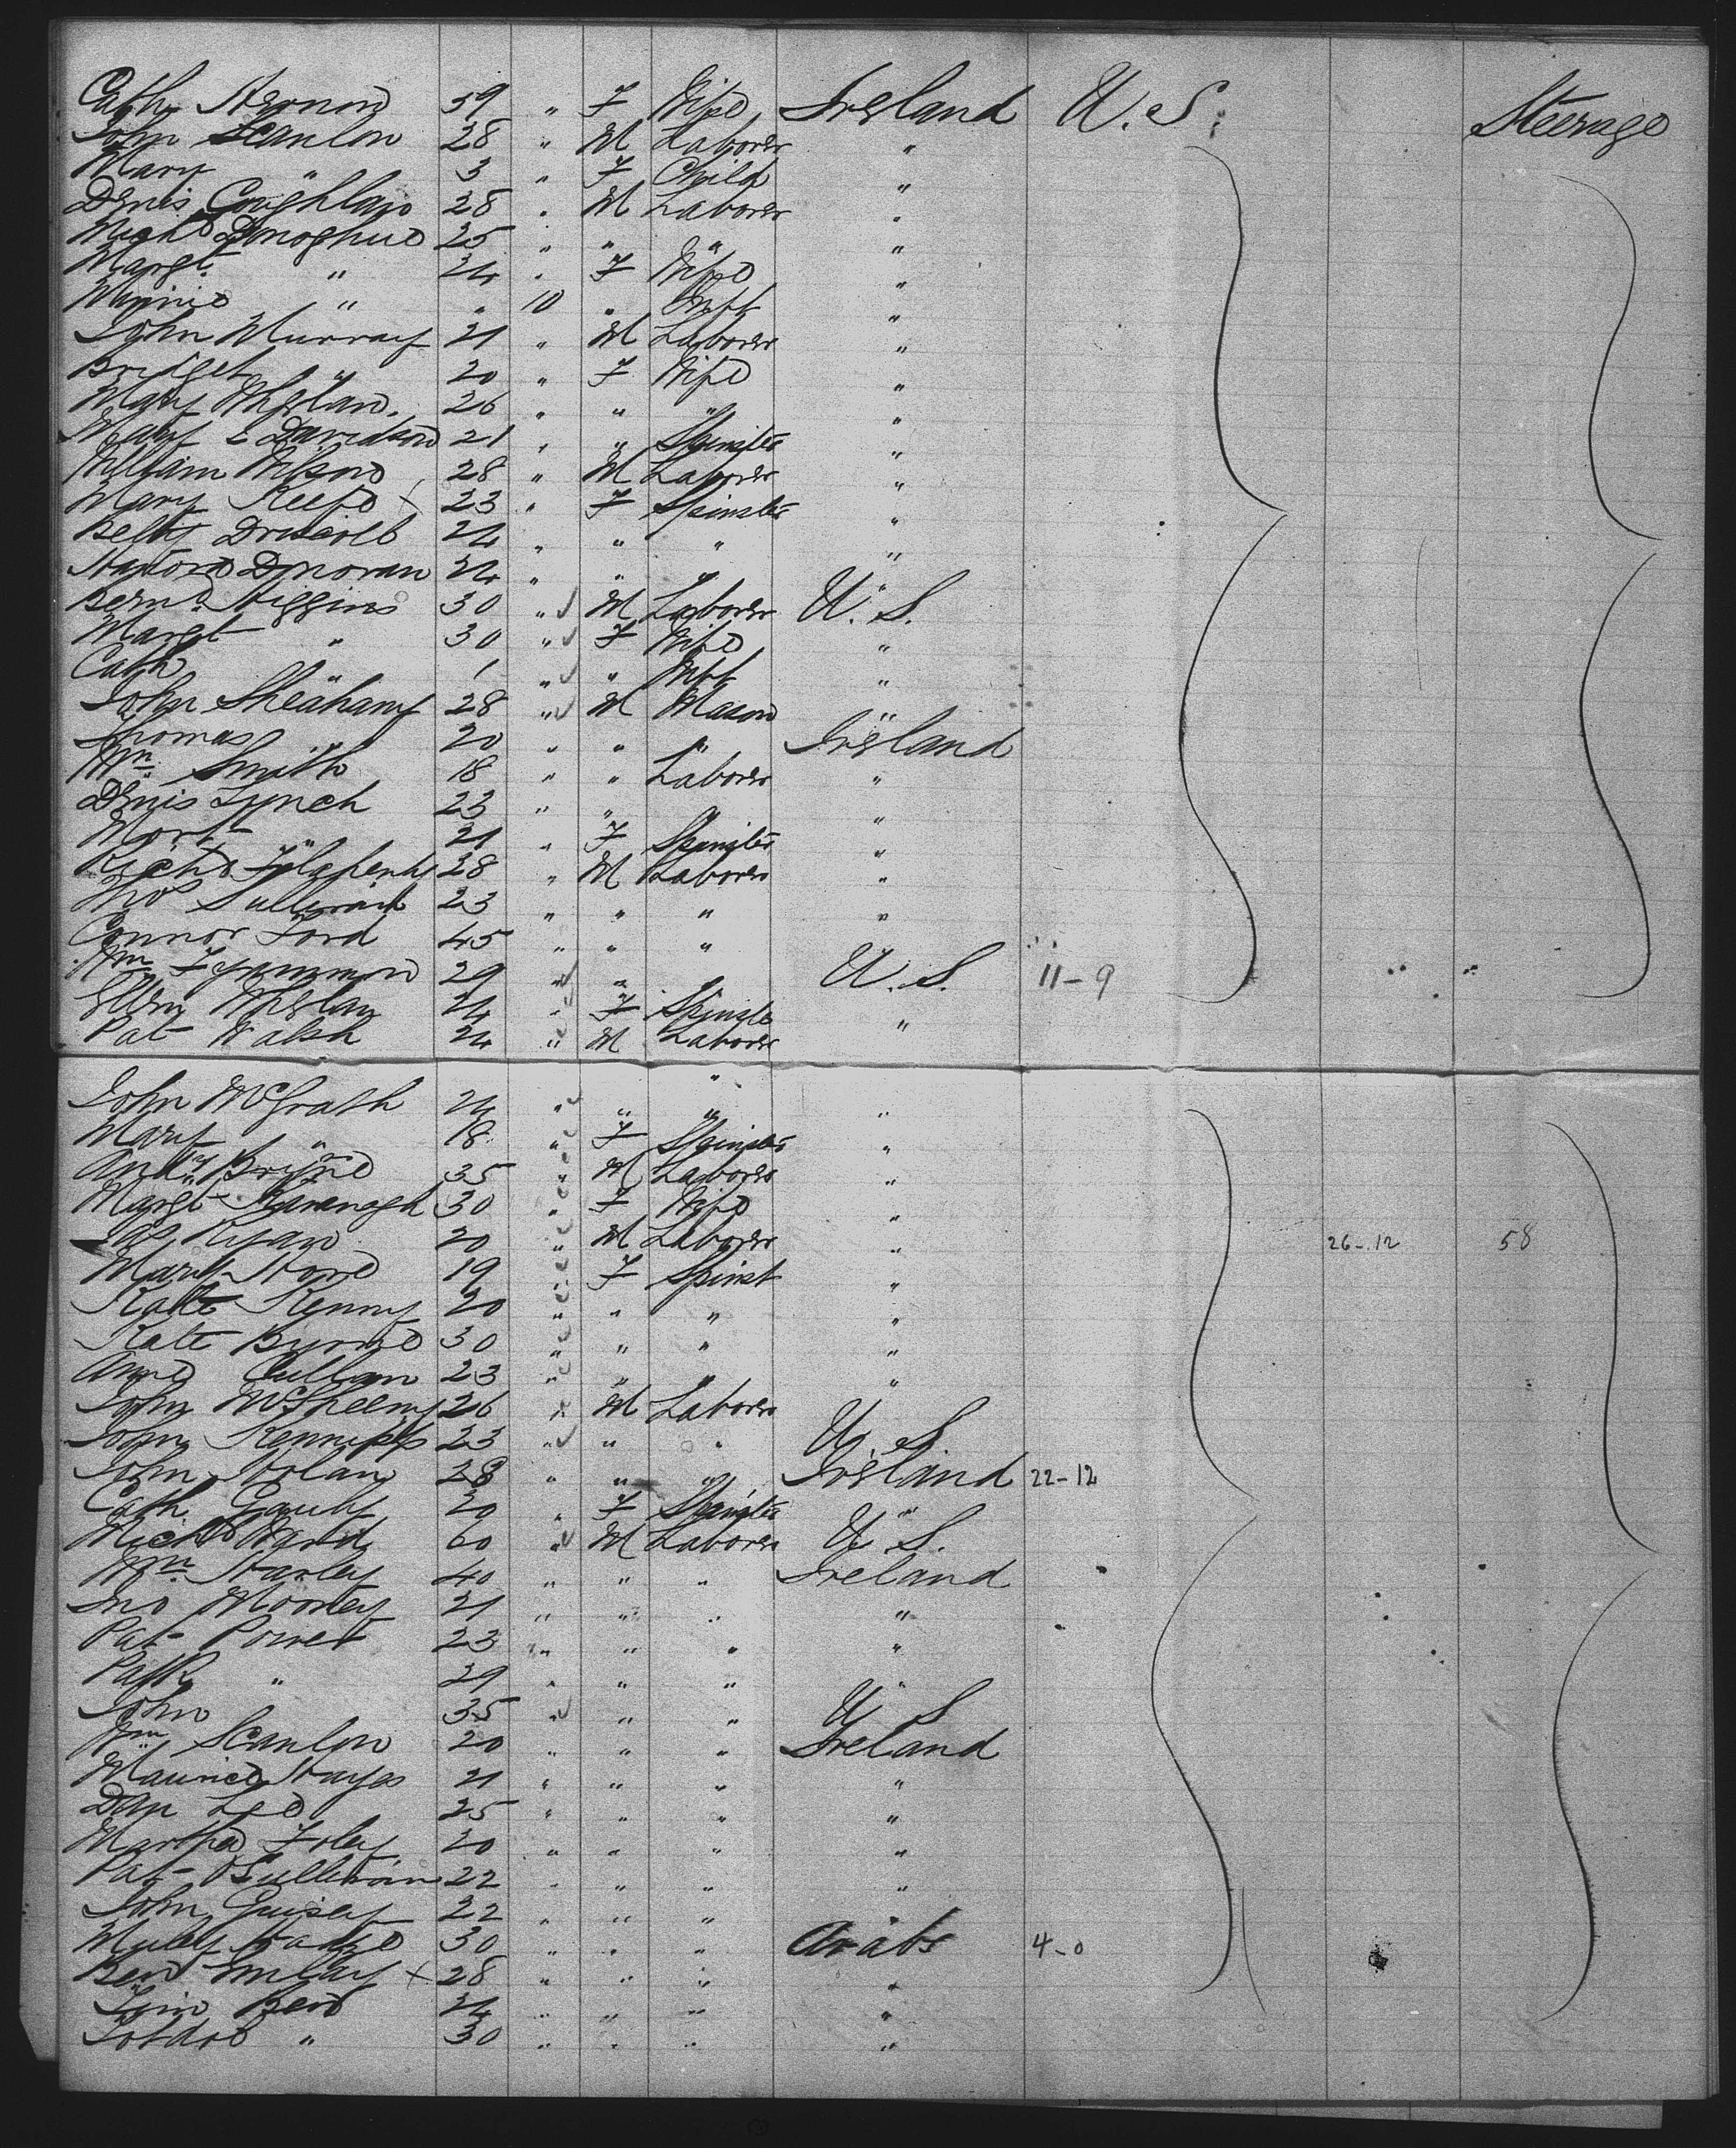 Cath 39 " F Wife Ireland U.S. Steerage
John Scanlon 28 " M Laborer "
Mary " 3 " F Child "
Denis Coughlan 28 " M Laborer "
Mich Donoghue 25 " " " "
Margt " 24 " F Wife "
Minnie " " 10 " Inft "
John Murray 21 " M Laborer "
Bridget " 20 " F Wife "
Mary Whelan. 26 " " " "
Mary E Davidson 21 " " Spinster "
William Wilson 28 " M Laborer "
Mary Keefe x 23 " F Spinster "
Betty Driscoll 24 " " " "
Donovan 24 " " " "
Bernd Higgins 30 " M Laborer U.S.
Margt " 30 " F Wife "
Cath " 1 " " Inft "
John Sheahan 28 " M Mason "
Thomas " 20 " " " Ireland
Wm Smith 18 " " Laborer "
Denis Lynch 23 " " "
Mort " 21 " F Spinster "
Richd 28 " M Laborer "
Sullivan 23 " " " "
Connor Ford 45 " " "
Wm 29 " " U.S. 11-9
Ellen Whelan 24 " F Spinster
Pat Walsh 24 " M Laborer "
John McGrath 24 " " " "
Mary " 18 " F Spinster "
Andw Bryne 35 " M Laborer "
Margt Kavanagh 30 " F Wife "
Ryan 20 " M Laborer " 26-12 58
Mary 19 " F Spinst "
Kate Kenny 20 " " " "
Kate Byrne 30 " " " "
Anne Cullen 23 " " " "
John McSheeny 26 " M Laborer
John 23 " " " U.S.
John Nolan 28 " " " Ireland 22-12
Cath 20 " F Spinster "
Michl Ward 60 " M Laborer U.S.
Wm Harley 40 " " " Ireland
Jno Mooney 21 " " " "
Pat Power 23 " " " "
Patk " 29 " " " "
John " 35 " " " U S
Wm Scanlon 20 " " " Ireland
Maurice Hayes 21 " " " "
Dan Lee 25 " " " "
Foley 20 " " " "
Pat OSullivan 22 " " " "
John 22 " " " "
Muley 30 " " " Arabs 4-0
Ben x 28 " " " "
Ben 24 " " " "
" 30 " " " "